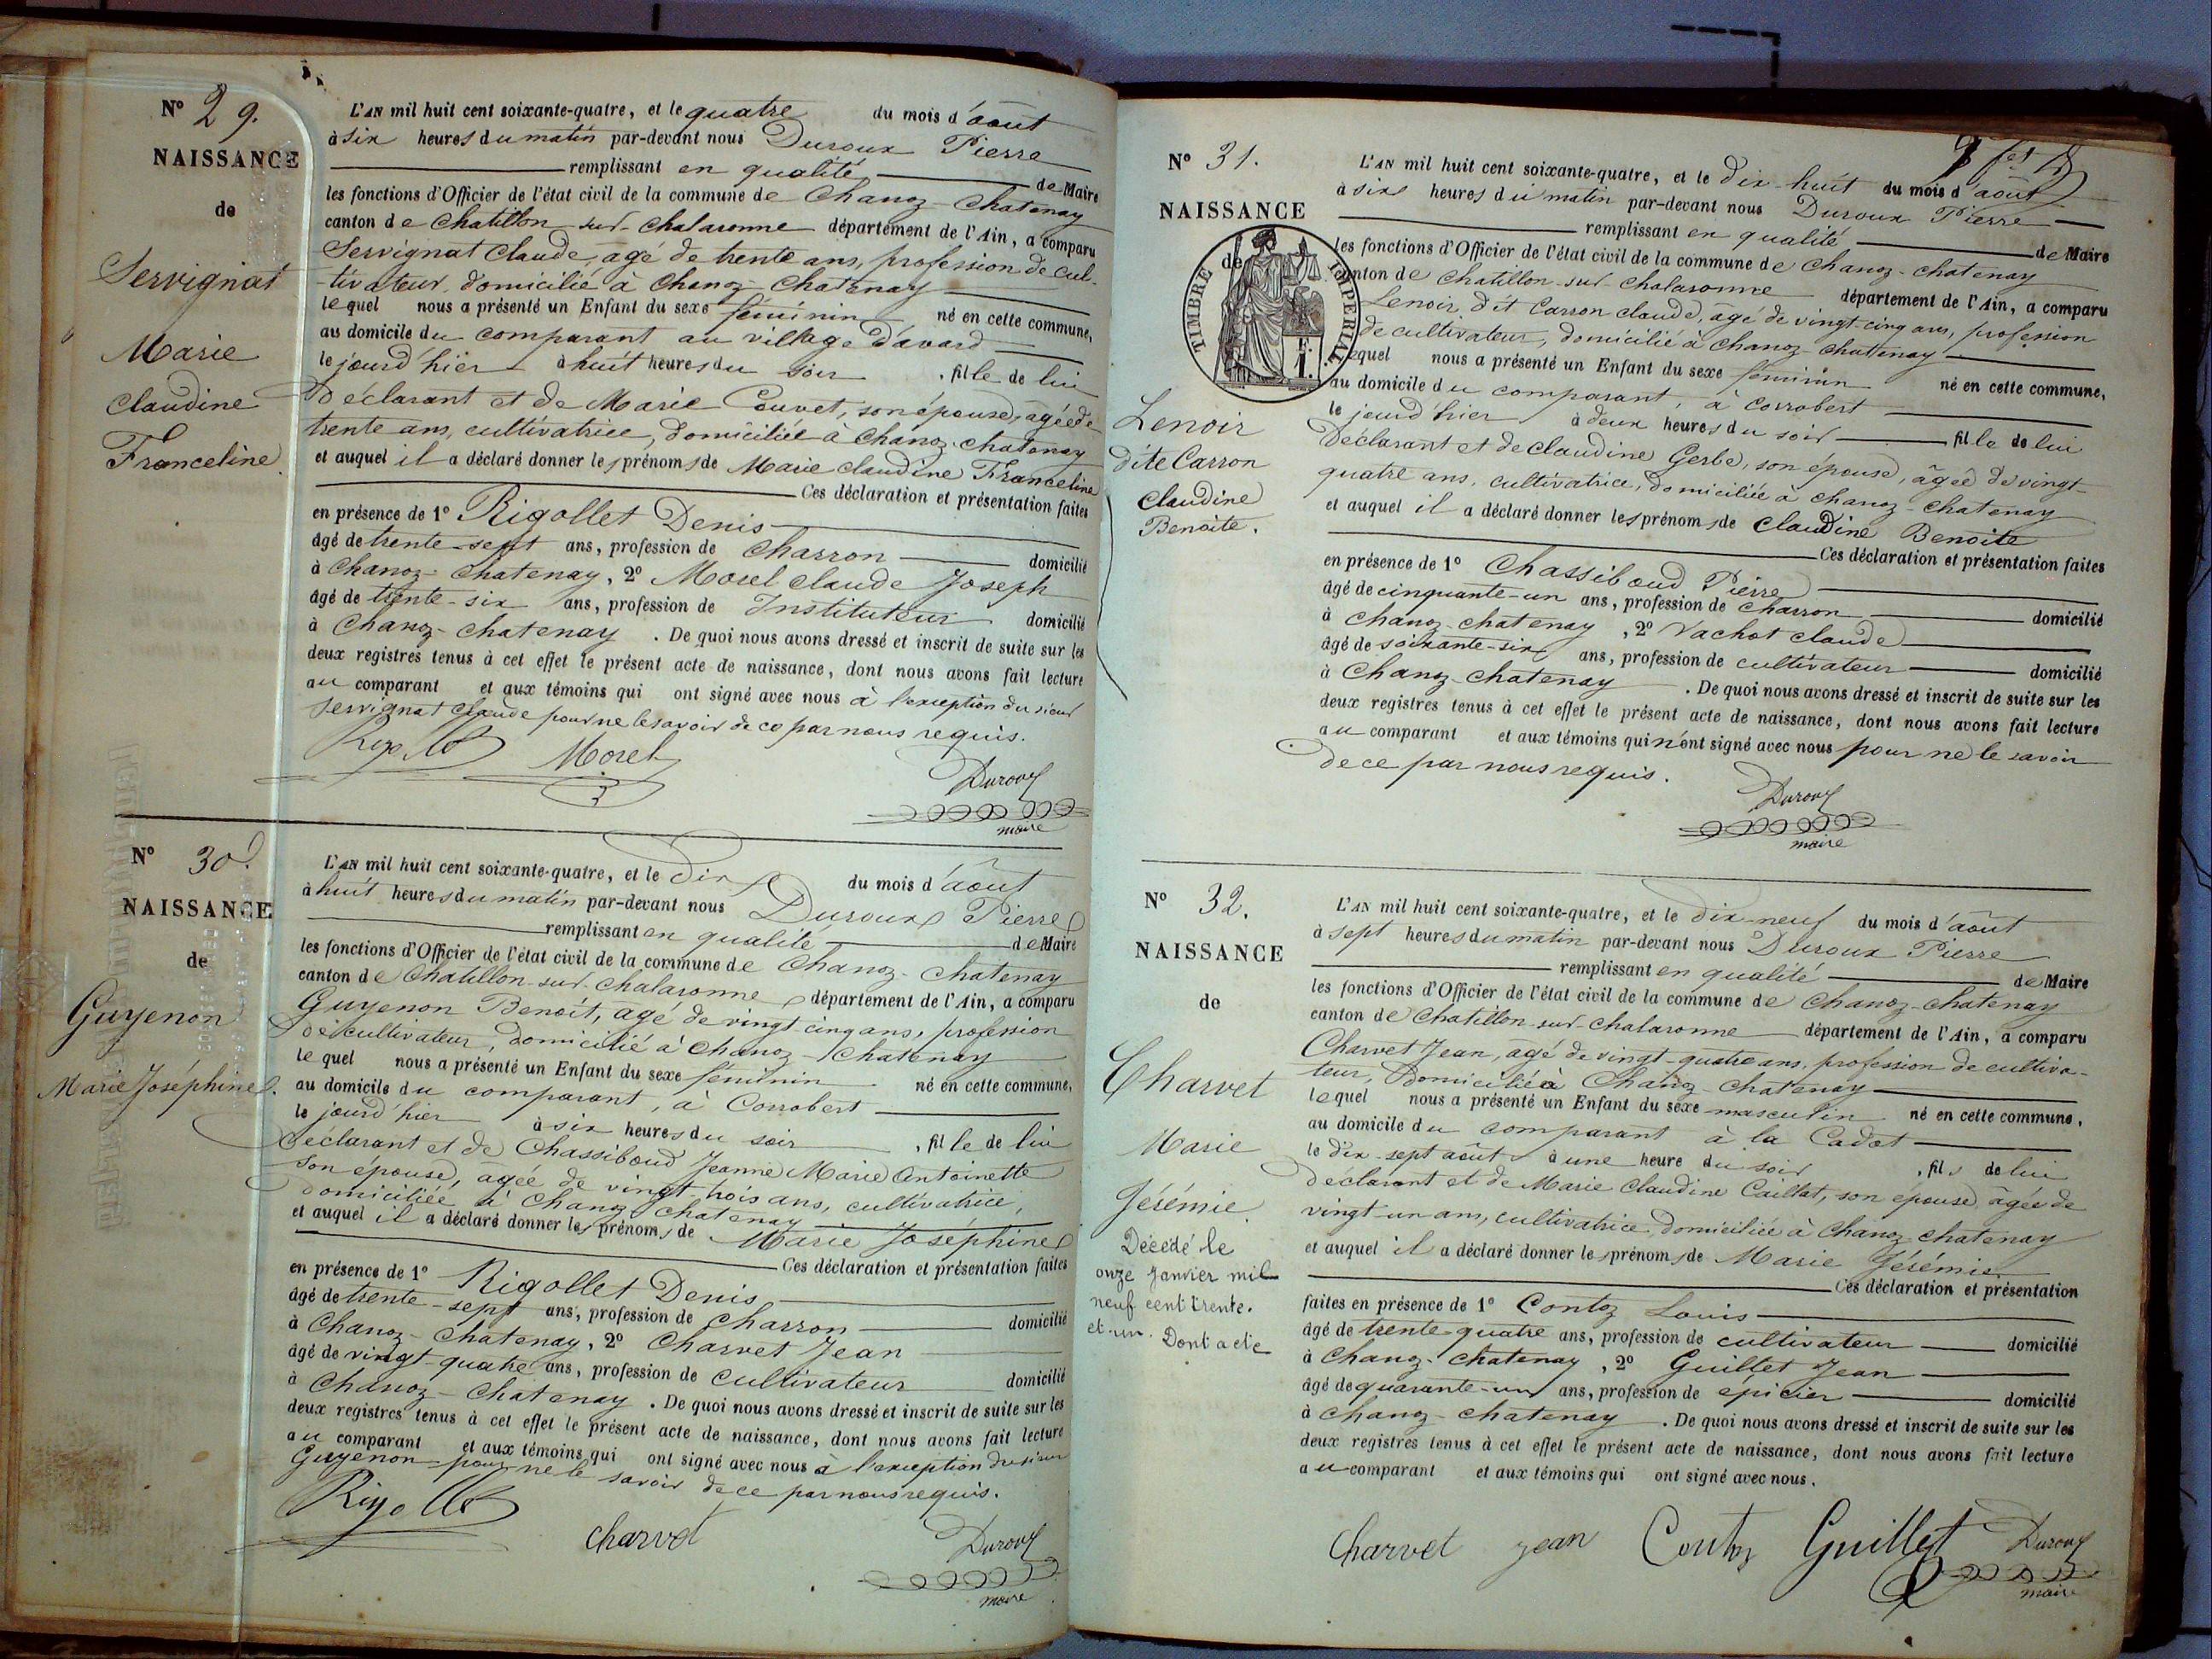 N° 29.
NAISSANCE
de
Servignat
Marie
Claudine
Franceline
L'AN mil huit cent soixante-quatre, et le quatre du mois d'août
à six heures du matin par-devant nous Duroux Pierre
remplissant en qualité de Maire
les fonctions d'Officier de l'état civil de la commune de Chanoz-Chatenay
canton de Chatillon-sur-Chalaronne département de l'Ain, a comparu
Servignat Claude, agé de trente ans, profession de cul-
-tivateur, domicilié à Chanoz-Chatenay
lequel nous a présenté un Enfant du sexe féminin né en cette commune,
au domicile du comparant au village d'avard
le jourd'hier à huit heures du soir, fille de lui
Déclarant et de Marie Couvet, son épouse, agée de
trente ans, cultivatrice, domiciliée à Chanoz-Chatenay
et auquel il a déclaré donner les prénoms de Marie Claudine Franceline
Ces déclaration et présentation faites
en présence de 1° Rigollet Denis
âgé de trente-sept ans, profession de Charron domicilié
à Chanoz-Chatenay, 2° Morel Claude Joseph
âgé de trente-six ans, profession de Instituteur domicilié
à Chanoz-Chatenay. De quoi nous avons dressé et inscrit de suite sur les
deux registres tenus à cet effet le présent acte de naissance, dont nous avons fait lecture
au comparant et aux témoins qui ont signé avec nous à l'exception du sieur
Servignat Claude pour ne le savoir de ce par nous requis.
Rigollet Morel Duroux
maire
N° 30.
NAISSANCE
de
Guyenon
Marie Joséphine.
L'AN mil huit cent soixante-quatre, et le dix du mois d'août
à huit heures du matin par-devant nous Duroux Pierre
remplissant en qualité de Maire
les fonctions d'Officier de l'état civil de la commune de Chanoz-Chatenay
canton de Chatillon-sur-Chalaronne département de l'Ain, a comparu
Guyenon Benoit, agé de vingt-cinq ans, profession
de cultivateur, domicilié à Chanoz-Chatenay
lequel nous a présenté un Enfant du sexe féminin né en cette commune,
au domicile du comparant, à Corrobert
le jourd'hier à six heures du soir, fille de lui
Déclarant et de Chassiboud Jeanne Marie Antoinette
son épouse, agée de vingt trois ans, cultivatrice,
domiciliée à Chanoz Chatenay
et auquel il a déclaré donner les prénoms de Marie Joséphine
Ces déclaration et présentation faites
en présence de 1° Rigollet Denis
âgé de trente-sept ans, profession de Charron domicilié
à Chanoz-Chatenay, 2° Charvet Jean
âgé de vingt-quatre ans, profession de Cultivateur domicilié
à Chanoz-Chatenay. De quoi nous avons dressé et inscrit de suite sur les
deux registres tenus à cet effet le présent acte de naissance, dont nous avons fait lecture
au comparant et aux témoins qui ont signé avec nous à l'exception du sieur
Guyenon pour ne le savoir de ce par nous requis.
Rigollet Charvet Duroux
maire
N° 31.
NAISSANCE
de
TIMBRE IMPERIAL
Lenoir
dite Carron
Claudine
Benoite.
L'AN mil huit cent soixante-quatre, et le dix-huit du mois d'août
à six heures du matin par-devant nous Duroux Pierre
remplissant en qualité de Maire
les fonctions d'Officier de l'état civil de la commune de Chanoz-Chatenay
canton de Chatillon-sur-Chalaronne département de l'Ain, a comparu
Lenoir dit Carron Claude, agé de vingt-cinq ans, profession
de cultivateur, domicilié à Chanoz-Chatenay
lequel nous a présenté un Enfant du sexe féminin né en cette commune,
au domicile du comparant, à Corrobert
le jourd'hier à deux heures du soir fille de lui
Déclarant et de Claudine Gerbe, son épouse, âgée de vingt-
quatre ans, cultivatrice, domiciliée à Chanoz-Chatenay
et auquel il a déclaré donner les prénoms de Claudine Benoite
Ces déclaration et présentation faites
en présence de 1° Chassiboud Pierre
âgé de cinquante-un ans, profession de Charron domicilié
à Chanoz-Chatenay, 2° Vachot Claude
âgé de soixante-six ans, profession de cultivateur domicilié
à Chanoz-Chatenay. De quoi nous avons dressé et inscrit de suite sur les
deux registres tenus à cet effet le présent acte de naissance, dont nous avons fait lecture
au comparant et aux témoins qui n'ont signé avec nous pour ne le savoir
de ce par nous requis.
Duroux
maire
N° 32.
NAISSANCE
de
Charvet
Marie
Jérémie.
Décédé le
onze janvier mil
neuf cent trente.
et-un. Dont acte
L'AN mil huit cent soixante-quatre, et le dix-neuf du mois d'août
à sept heures du matin par-devant nous Duroux Pierre
remplissant en qualité de Maire
les fonctions d'Officier de l'état civil de la commune de Chanoz-Chatenay
canton de Chatillon-sur-Chalaronne département de l'Ain, a comparu
Charvet Jean, agé de vingt-quatre ans, profession de cultiva-
teur, domicilié à Chanoz-Chatenay
lequel nous a présenté un Enfant du sexe masculin né en cette commune,
au domicile du comparant à la Cadot
le dix-sept août à une heure du soir, fils de lui
Déclarant et de Marie Claudine Caillat, son épouse âgée de
vingt-un ans, cultivatrice domiciliée à Chanoz-Chatenay
et auquel il a déclaré donner les prénoms de Marie Jérémie
Ces déclaration et présentation
faites en présence de 1° Contoz Louis
âgé de trente-quatre ans, profession de cultivateur domicilié
à Chanoz-Chatenay, 2° Guillet Jean
âgé de quarante-un ans, profession de épicier domicilié
à Chanoz-Chatenay. De quoi nous avons dressé et inscrit de suite sur les
deux registres tenus à cet effet le présent acte de naissance, dont nous avons fait lecture
au comparant et aux témoins qui ont signé avec nous.
Charvet jean Contoz Guillet Duroux
maire